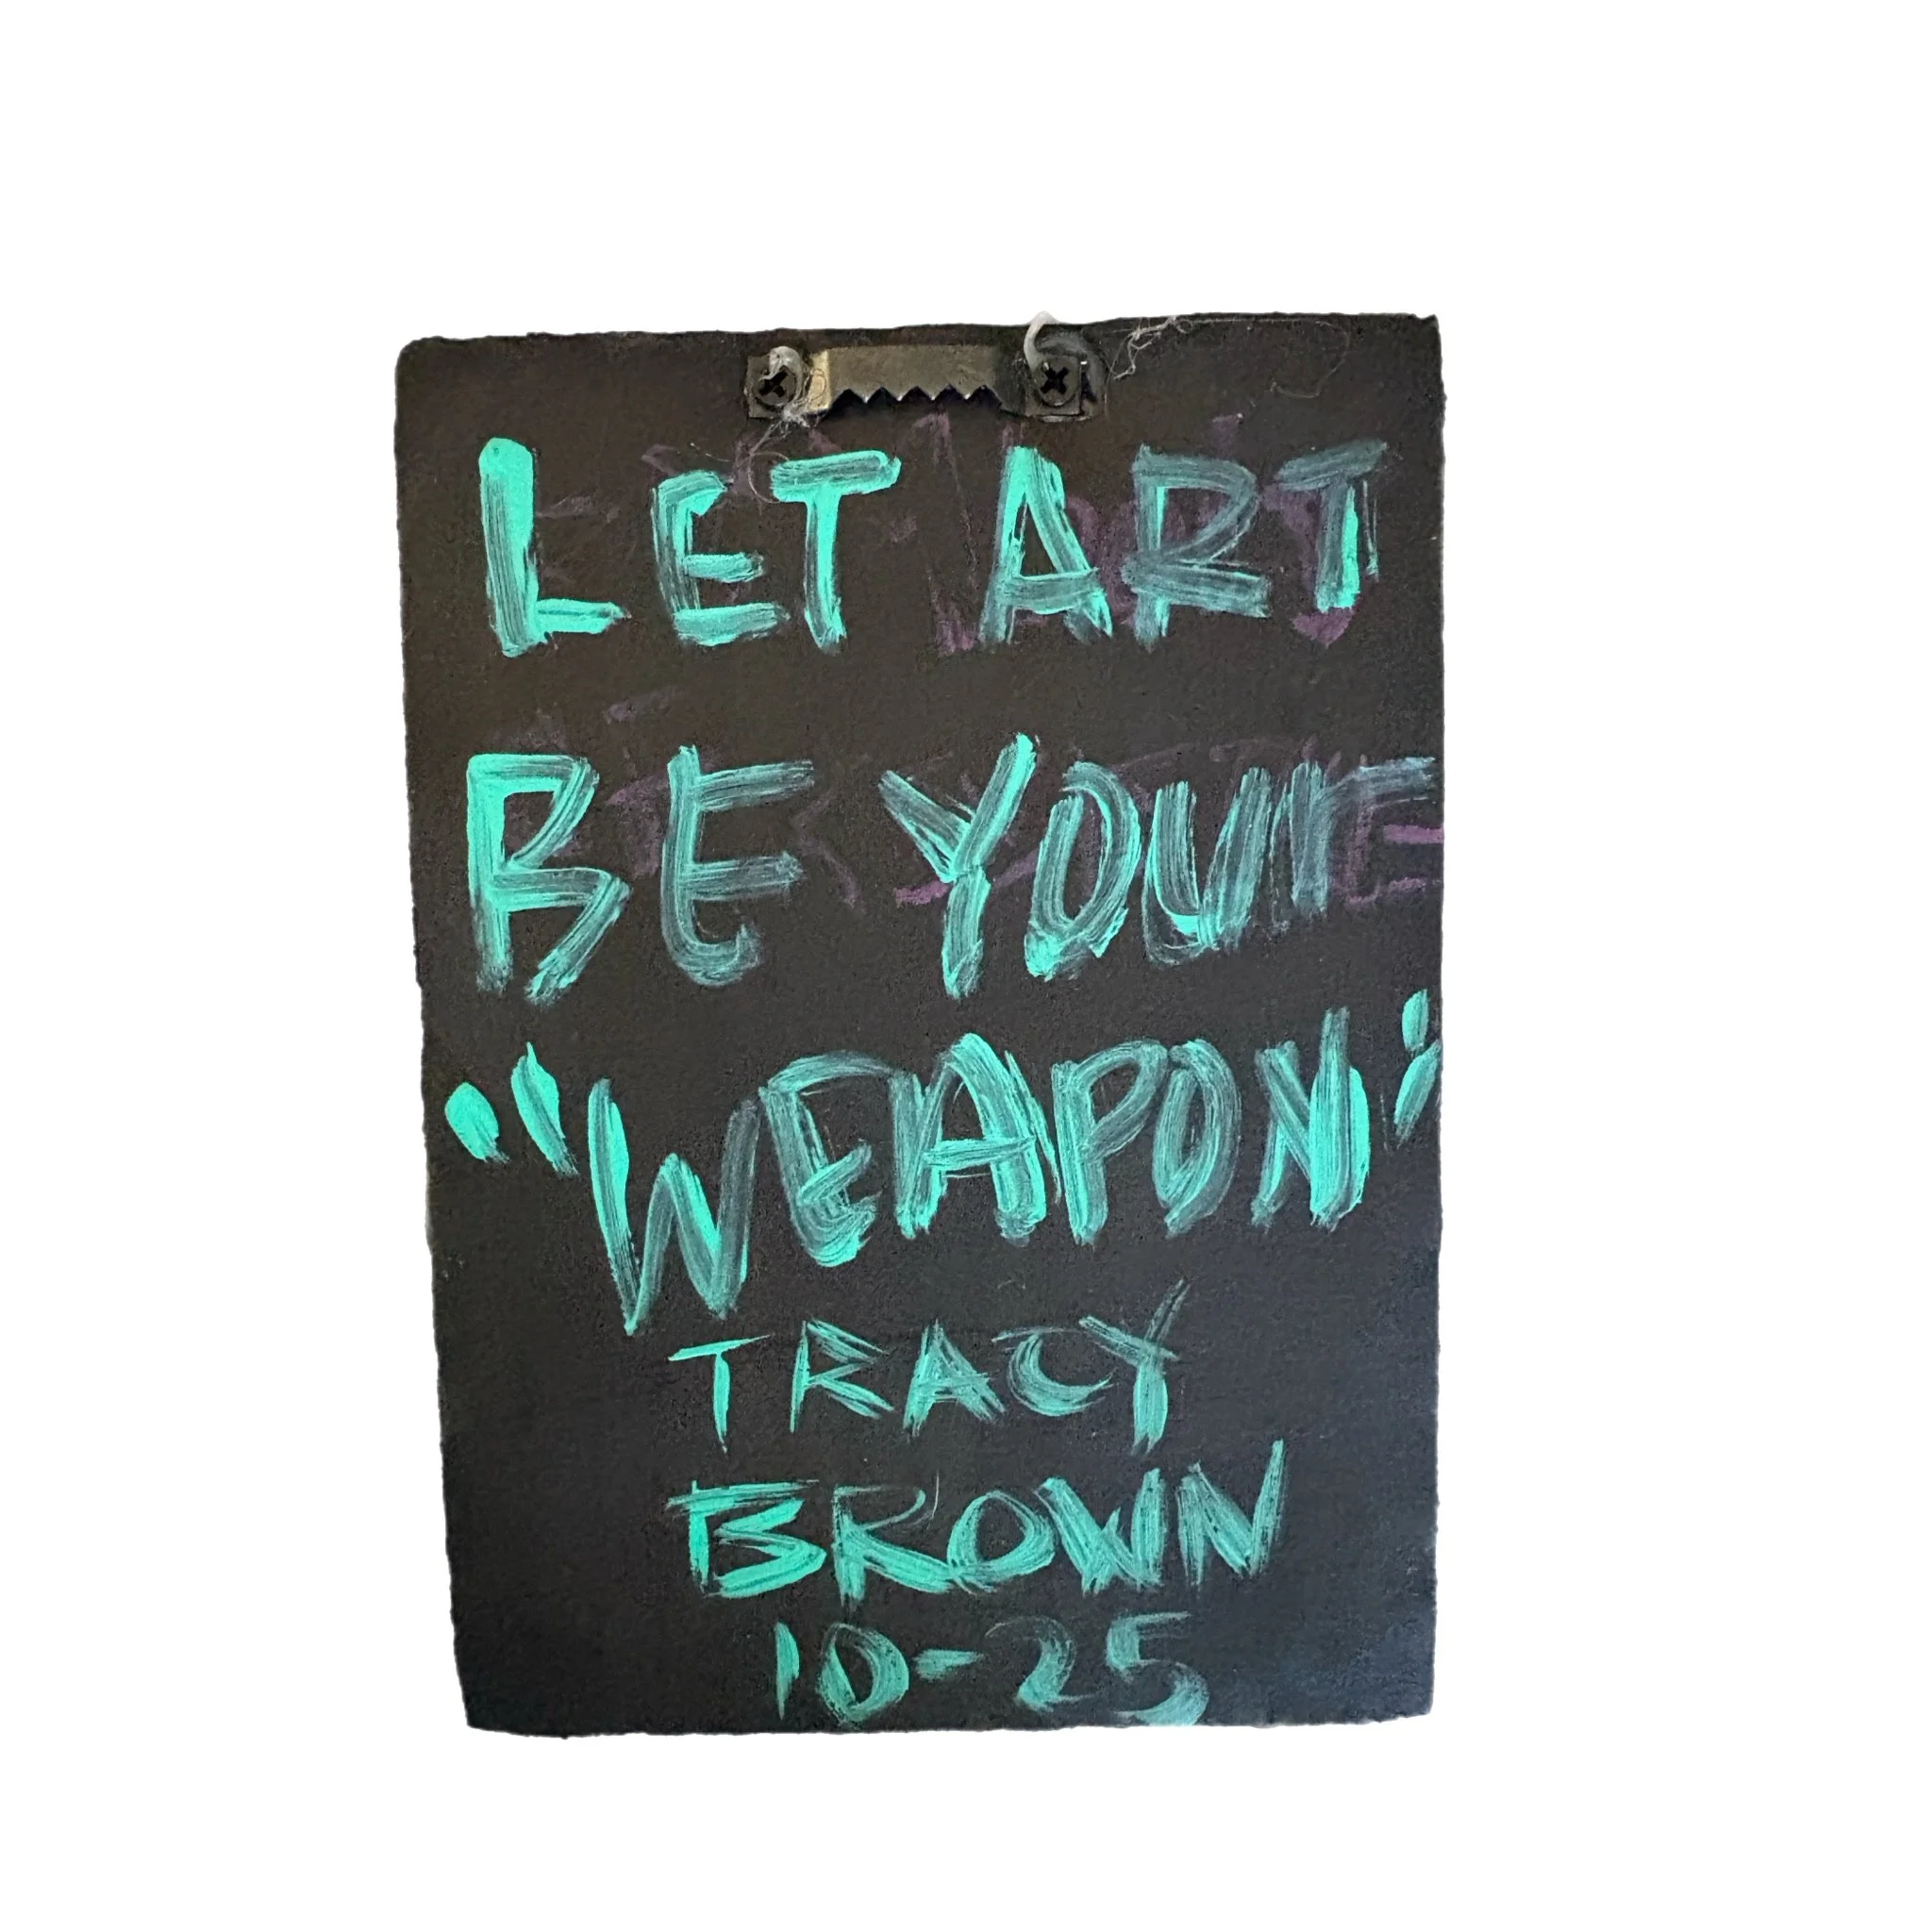 LET ART
BE YOUR
"WEAPON"
TRACY
BROWN
10-25